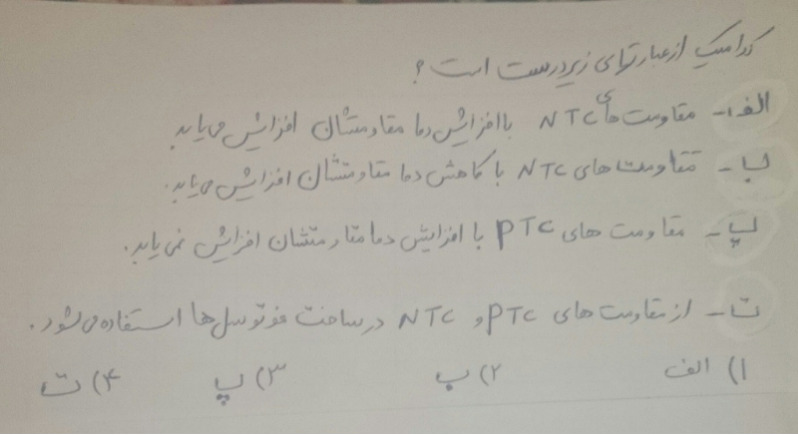 کدامیک از عبارتهای زیر درست است؟
الف - مقاومت های NTC با افزایش دما مقاومتشان افزایش می یابد.
ب - مقاومت های NTC با کاهش دما مقاومتشان افزایش می یابد.
پ - مقاومت های PTC با افزایش دما مقاومتشان افزایش نمی یابد.
ت - از مقاومت های PTC و NTC در ساخت فوتوسل ها استفاده می شود.
۱) الف ۲) ب ۳) پ ۴) ت